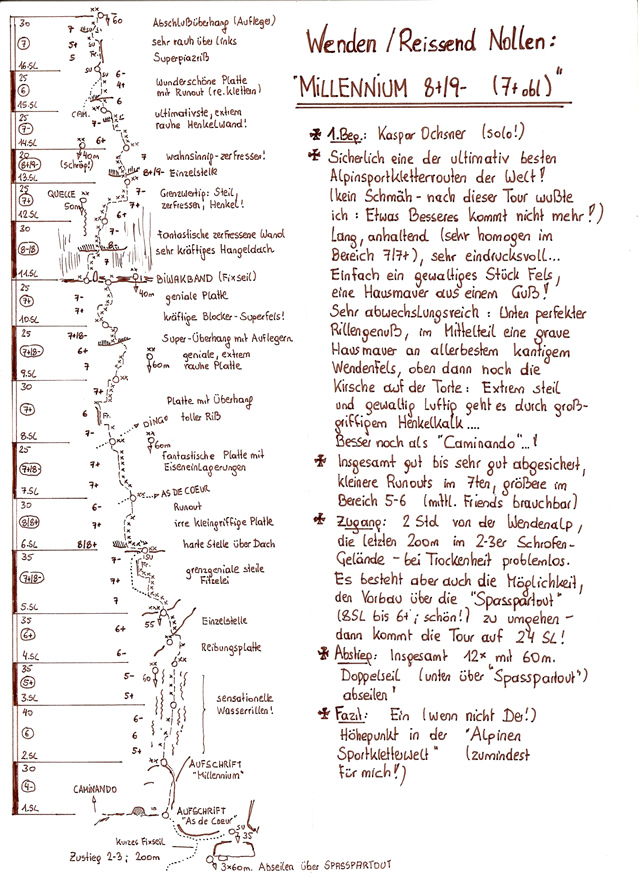 Wenden / Reissend Nollen:
"MILLENNIUM 8+/9- (7+ obl)"
1. Beg.: Kaspar Ochsner (solo!)
Sicherlich eine der ultimativ besten
Alpinsportkletterrouten der Welt!
(kein Schmäh - nach dieser Tour wußte
ich: Etwas Besseres kommt nicht mehr!)
Lang, anhaltend (sehr homogen im
Bereich 7/7+), sehr eindrucksvoll...
Einfach ein gewaltiges Stück Fels,
eine Hausmauer aus einem Guß!
Sehr abwechslungsreich: Unten perfekter
Rillengenuß, im Mittelteil eine graue
Hausmauer an allerbestem kantigem
Wendenfels, oben dann noch die
Kirsche auf der Torte: Extrem steil
und gewaltig luftig geht es durch groß-
griffigem Henkelkalk....
Besser noch als "Caminando"...!
Insgesamt gut bis sehr gut abgesichert,
kleinere Runouts im 7ten, größere im
Bereich 5-6 (mttl. Friends brauchbar)
Zugang: 2 Std. von der Wendenalp,
die letzten 200m im 2-3er Schrofen-
Gelände - bei Trockenheit problemlos.
Es besteht aber auch die Möglichkeit,
den Vorbau über die "Spasspartout"
(8SL bis 6+; schön!) zu umgehen -
dann kommt die Tour auf 24 SL!
Abstieg: Insgesamt 12x mit 60m.
Doppelseil (unten über "Spasspartout")
abseilen!
Fazit: Ein (wenn nicht Der!)
Höhepunkt in der "Alpinen
Sportkletterwelt" (zumindest
für mich!)
30
7
16.SL
7
5+
5
SU
Fr.
SU
60
Abschlußüberhang (Aufleger)
sehr rauh über links
Superpiazriß
25
6
15.SL
6-
4+
CAM.
Wunderschöne Platte
mit Runout (re. kletten)
25
7-
14.SL
7-
6+
ultimativste, extrem
rauhe Henkelwand!
20
8+/9-
13.SL
40m
(schräg!)
7
8+/9-
wahnsinnig zerfressen!
Einzelstelle
25
7+
12.SL
QUELLE
50m
7-
7+
6+
Grenzwertig: Steil,
zerfressen, Henkel!
30
8-/8
11.SL
7-
8-
fantastische zerfressene Wand
sehr kräftiges Hangeldach
BIWAKBAND (Fixseil)
40m
25
7+
10.SL
7-
7+
geniale Platte
kräftige Blocker-Superfels!
25
7+/8-
9.SL
7+/8-
6+
7
Super-Überhang mit Auflegern
geniale, extrem
rauhe Platte
60m
30
7+
8.SL
7+
6
Fr.
7-
Platte mit Überhang
toller Riß
DINGO
60m
25
7+/8-
7.SL
7+
7+
fantastische Platte mit
Eiseneinlagerungen
AS DE COEUR
30
8/8+
6.SL
6-
7+
8/8+
Runout
irre kleingriffige Platte
harte Stelle über Dach
35
7+/8-
5.SL
7-
SU
Fr.
7+
7
grenzgeniale steile
Fitzelei
55
35
6+
4.SL
6+
6-
Einzelstelle
Reibungsplatte
35
5+
3.SL
5-
60
5+
sensationelle
Wasserrillen!
40
6
2.SL
6-
6
5+
30
4-
1.SL
AUFSCHRIFT
"Millennium"
CAMINANDO
AUFSCHRIFT
"As de Coeur"
SU
35
Kurzes Fixseil
Zustieg 2-3; 200m
3x60m. Abseilen über SPASSPARTOUT